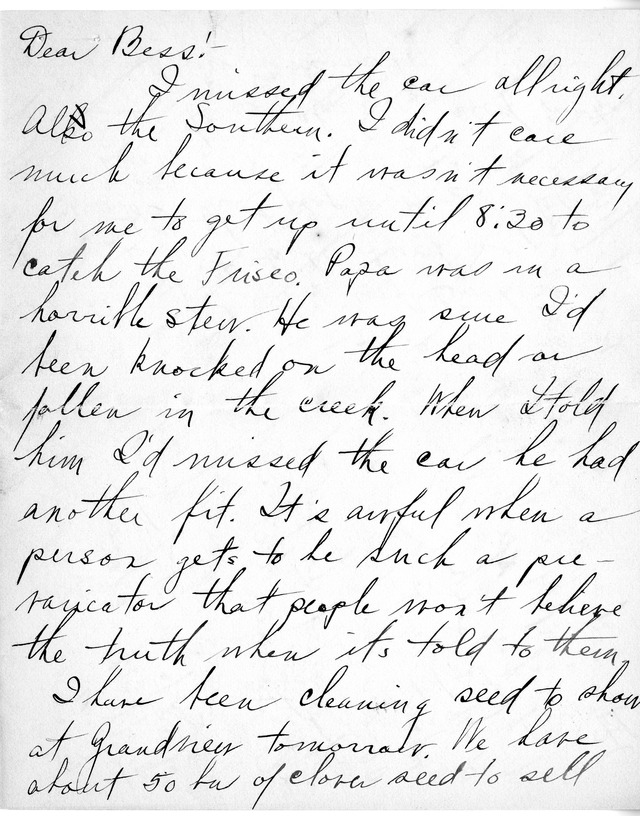 Dear Bess:-
I missed the car allright.
Also the Southern. I didn't care
much because it wasn't necessary
for me to get up until 8:30 to
catch the Frisco. Papa was in a
horrible stew. He was sure I'd
been knocked on the head or
fallen in the creek. When I told
him I'd missed the car he had
another fit. It's awful when a
person gets to be such a pre-
varicator that people won't believe
the truth when its told to them
I have been cleaning seed to show
at Grandview tomorrow. We have
about 50 bu of clover seed to sell